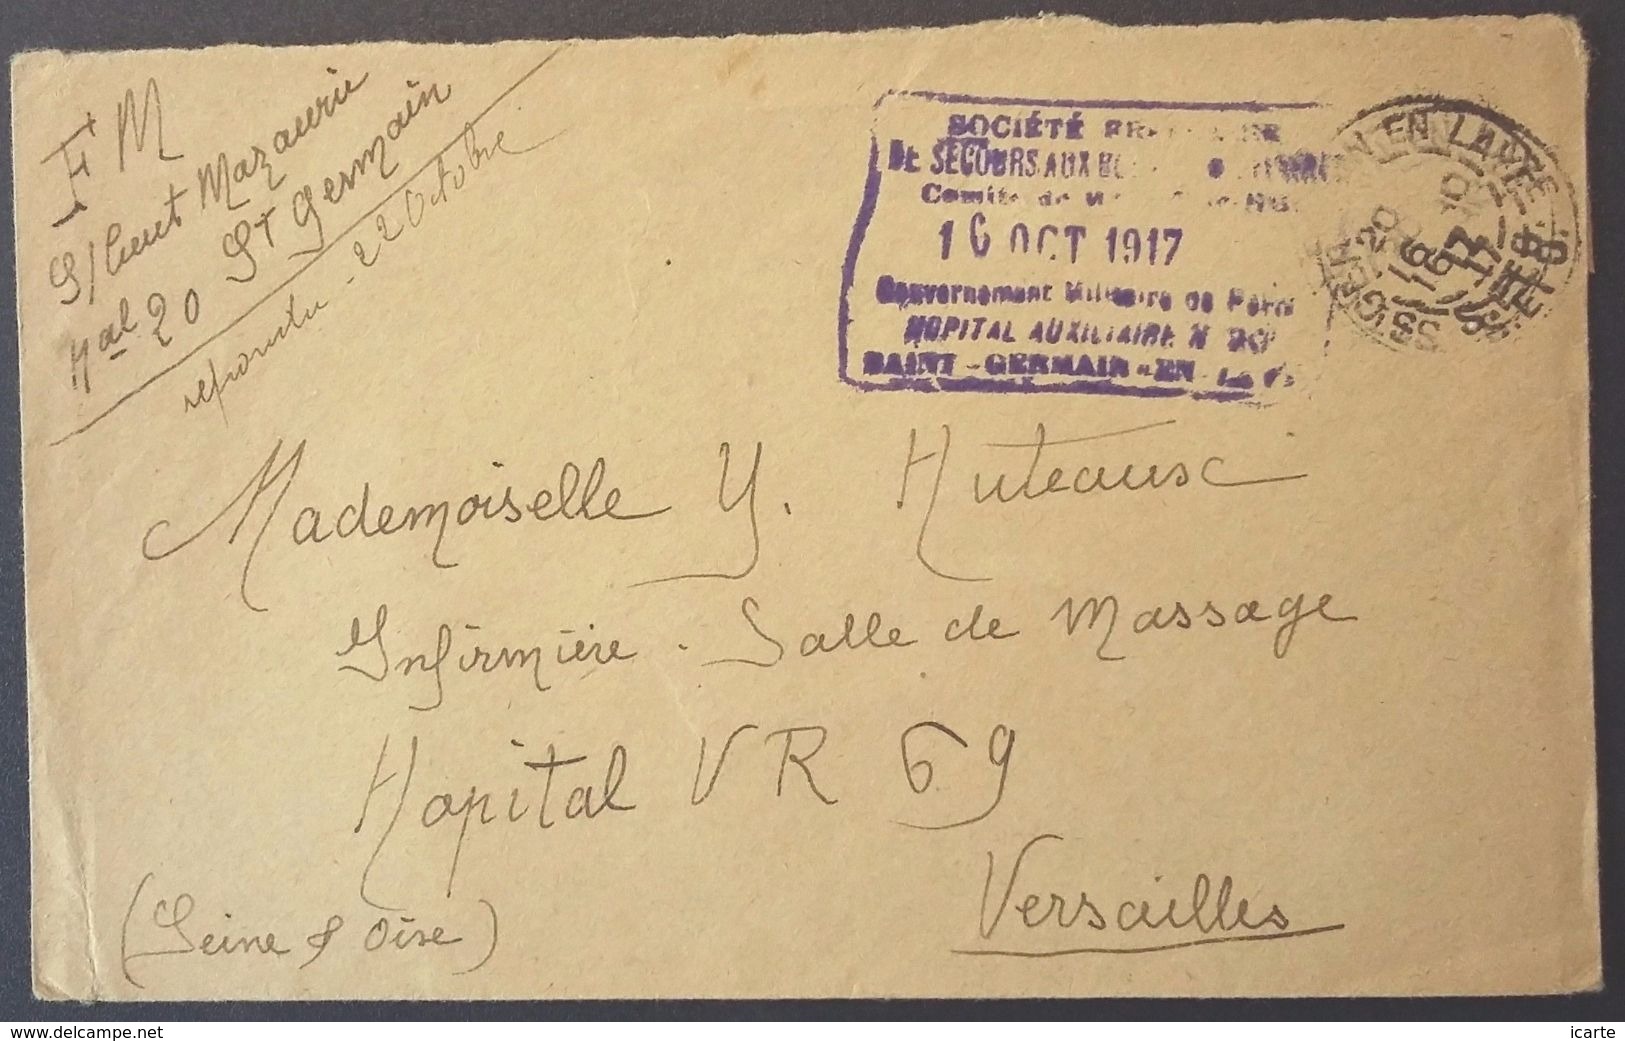 F M
S/Lieut Mazaurie
Hal 20 St Germain
repondu - 22 Octobre
SOCIÉTÉ
DE SECOURS AUX
Comité de
16 OCT 1917
Gouvernement Militaire de Paris
HOPITAL AUXILIAIRE N 20
SAINT-GERMAIN-EN-LAYE
EN LAYE
20
16 - 10
17
Mademoiselle Y. Huteaux
Infirmière. Salle de Massage
Hopital VR 69
Versailles
(Seine & Oise)
delcampe.net
icarte